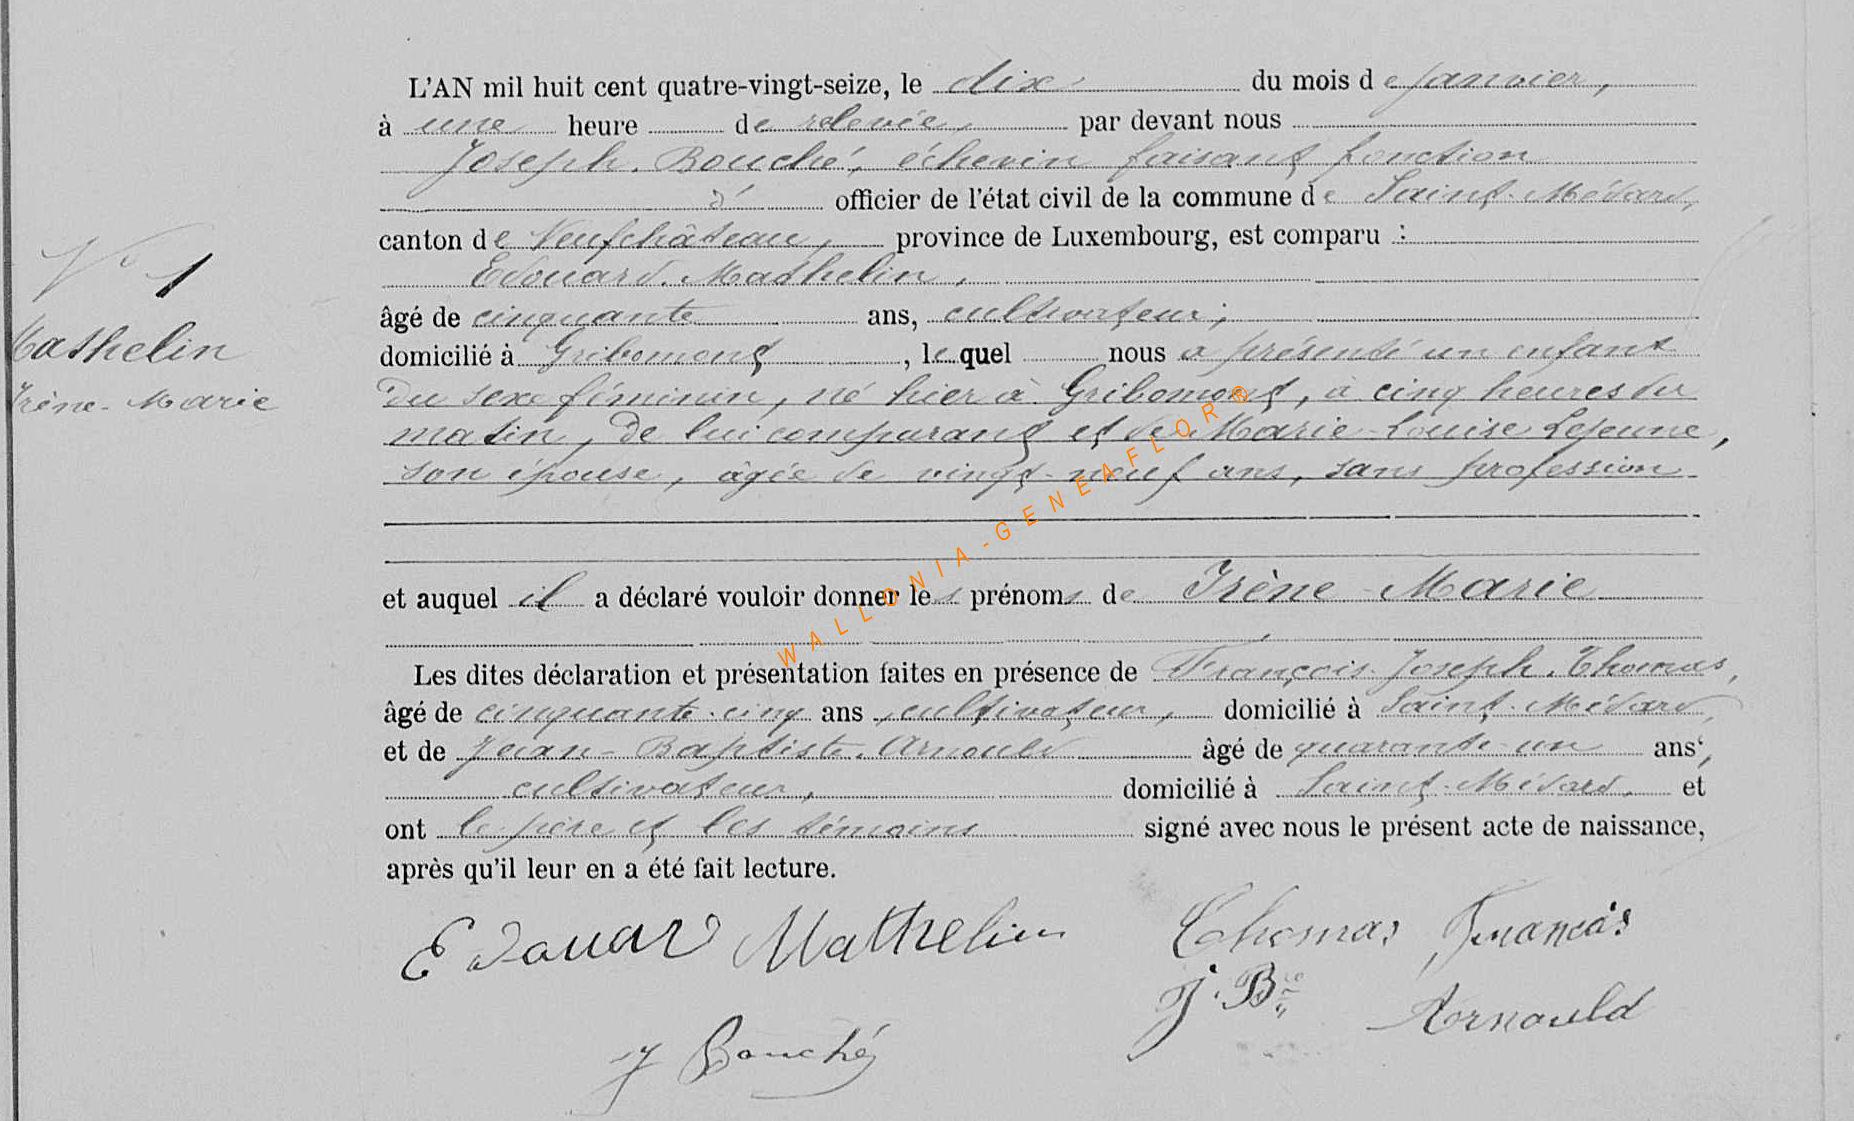 L'AN mil huit cent quatre-vingt-seize, le dix du mois de janvier,
à une heure de relevée, par devant nous
Joseph Bouché, échevin faisant fonction
d' officier de l'état civil de la commune de Saint-Médard,
canton de Neufchâteau, province de Luxembourg, est comparu :
Edouard Mathelin,
âgé de cinquante ans, cultivateur,
domicilié à Gribomont, lequel nous a présenté un enfant
du sexe féminin, né hier à Gribomont, à cinq heures du
matin, de lui comparant et de Marie-Louise Lejeune,
son épouse, âgée de vingt-neuf ans, sans profession
et auquel il a déclaré vouloir donner les prénoms de Irène-Marie
Les dites déclaration et présentation faites en présence de François Joseph Thomas,
âgé de cinquante-cinq ans, cultivateur, domicilié à Saint-Médard,
et de Jean-Baptiste Arnould âgé de quarante-un ans,
cultivateur, domicilié à Saint-Médard, et
ont le père et les témoins signé avec nous le présent acte de naissance,
après qu'il leur en a été fait lecture.
N° 1
Mathelin
Irène-Marie
Edouard Mathelin
Thomas François
J. Bte Arnould
J Bouché
WALLONIA-GENEAFLOR®